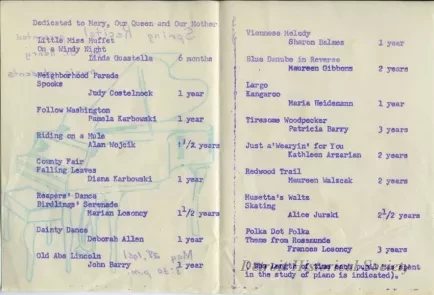 Dedicated to Mary, Our Queen and Our Mother
Little Miss Muffet
On a Windy Night
Linda Guastella 6 months
Neighborhood Parade
Spooks
Judy Costelnock 1 year
Follow Washington
Pamela Karbowski 1 year
Riding on a Mule
Alan Wojcik 1 1/2 years
County Fair
Falling Leaves
Diana Karbowski 1 year
Reapers' Dance
Birdlings' Serenade
Marian Losoncy 1 1/2 years
Dainty Dance
Deborah Allen 1 year
Old Abe Lincoln
John Barry 1 year
Viennese Melody
Sharon Balmes 1 year
Blue Danube in Reverse
Maureen Gibbons 2 years
Largo
Kangaroo
Maria Heidemann 1 year
Tiresome Woodpecker
Patricia Barry 3 years
Just a'Wearyin' for You
Kathleen Arzarian 2 years
Redwood Trail
Maureen Walczak 2 years
Musetta's Waltz
Skating
Alice Jurski 2 1/2 years
Polka Dot Polka
Theme from Rosamunde
Frances Losoncy 3 years
(The length of time each pupil has spent
in the study of piano is indicated).
Historical Society